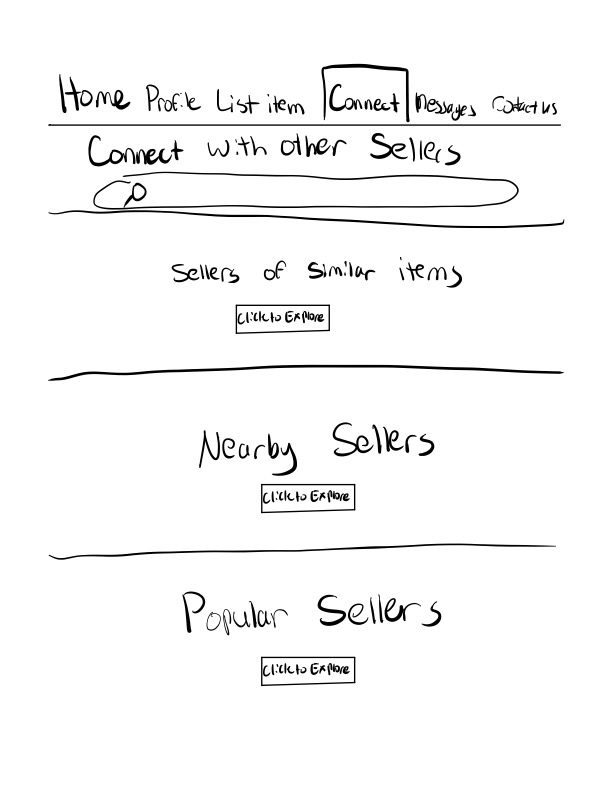 Home Profile List item Connect Messages Contact us
Connect with other Sellers
Sellers of similar items
Click to Explore
Nearby Sellers
Click to Explore
Popular Sellers
Click to Explore